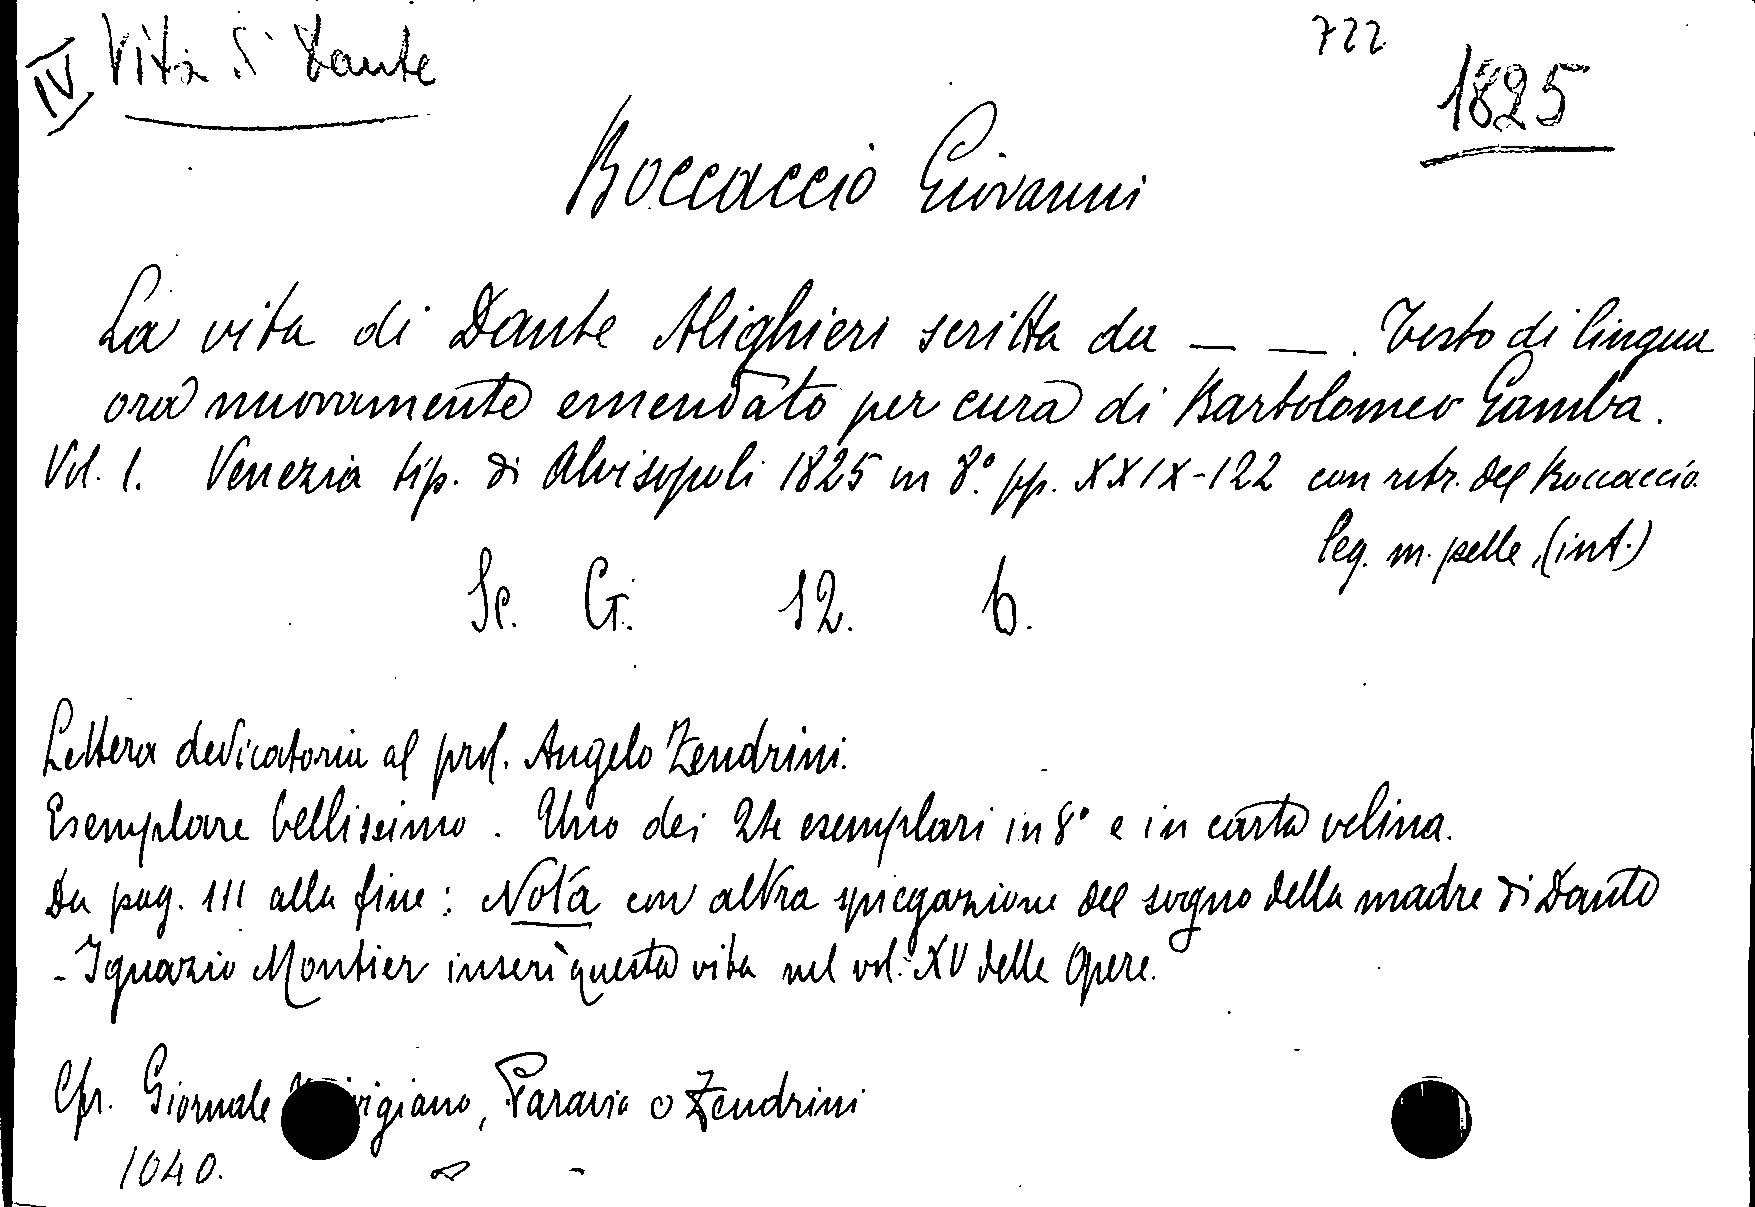 IV Vita di Dante
722
1825
Boccaccio Giovanni
La vita di Dante Alighieri scritta da — — . Testo di lingua
ora nuovamente emendato per cura di Bartolomeo Gamba.
Vol. 1. Venezia tip. di Alvisopoli 1825 in 8.° pp. XXIX-122 con ritr. del Boccaccio
leg. m. pelle (int.)
Sc. G. 12. 6.
Lettera dedicatoria al prof. Angelo Zendrini.
Esemplare bellissimo. Uno dei 24 esemplari in 8° e in carta velina.
Da pag. 111 alla fine: Nota con altra spiegazione del sogno della madre di Dante
- Ignazio Montier inserì questa vita nel vol. XV delle Opere.
Cfr. Giornale Paravia o Zendrini
1040.